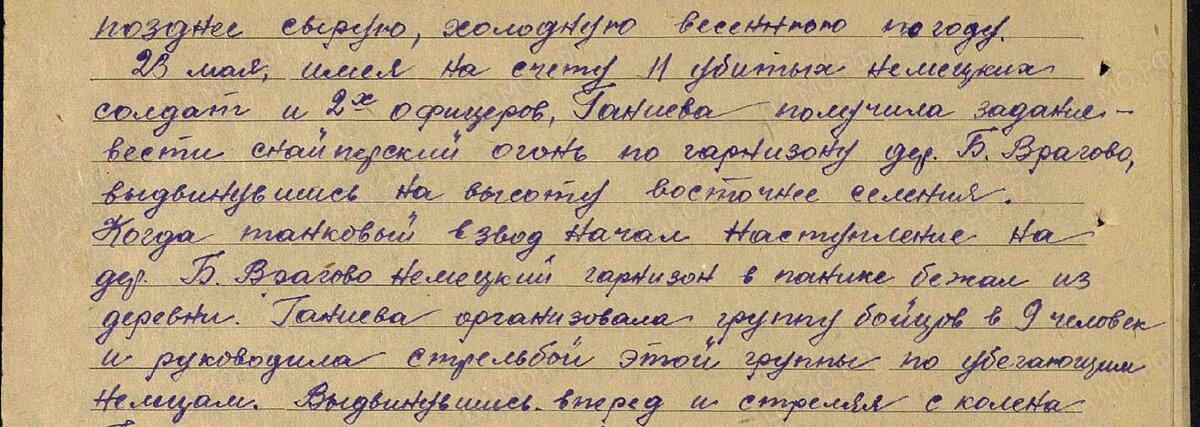 позднее сырую, холодную весеннюю погоду.
23 мая, имея на счету 11 убитых немецких
солдат и 2х офицеров, Ганиева получила задание –
вести снайперский огонь по гарнизону дер. Б. Врагово,
выдвинувшись на высоту восточнее селения.
Когда танковый взвод начал наступление на
дер. Б. Врагово немецкий гарнизон в панике бежал из
деревни. Ганиева организовала группу бойцов в 9 человек
и руководила стрельбой этой группы по убегающим
немцам. Выдвинувшись вперед и стреляя с колена